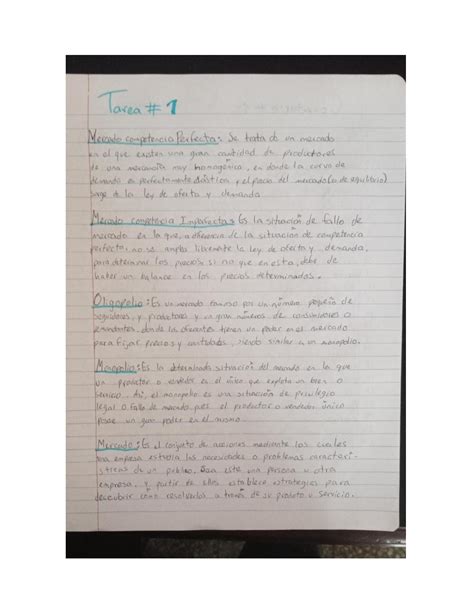 Tarea # 1
Mercado competencia Perfecta: Se trata de un mercado
en el que existen una gran cantidad de productores
de una mercancía muy homogénica, en donde la curva de
demanda es perfectamente elástica y el precio del mercado (o de equilibrio)
surge de la ley de oferta y demanda
Mercado competencia Imperfecta: Es la situación de fallo de
mercado en la que, a diferencia de la situación de competencia
perfecta, no se amplia libremente la ley de oferta y demanda,
para determinar los precios si no que en esta, debe de
haber un balance en los precios determinados.
Oligopolio: Es un mercado por un número pequeño de
y productores y un gran números de consumidores o
demandantes, donde los oferentes tienen un poder en el mercado
para fijar precios y cantidades, siendo similar a un monopolio.
Monopolio: Es la determinada situación del mercado en la que
un productor o vendedor es el único que explota un bien o
servicio. Así, el monopolio es una situación de privilegio
legal o fallo de mercado, pues el productor o vendedor único
posee un gran poder en el mismo.
Mercado: Es el conjunto de acciones mediante las cuales
una empresa estudia las necesidades o problemas caracteri-
sticas de un publico. Sea este una persona u otra
empresa, y partir de ellos establece estrategias para
descubrir como resolverlos a través de su producto o servicio.